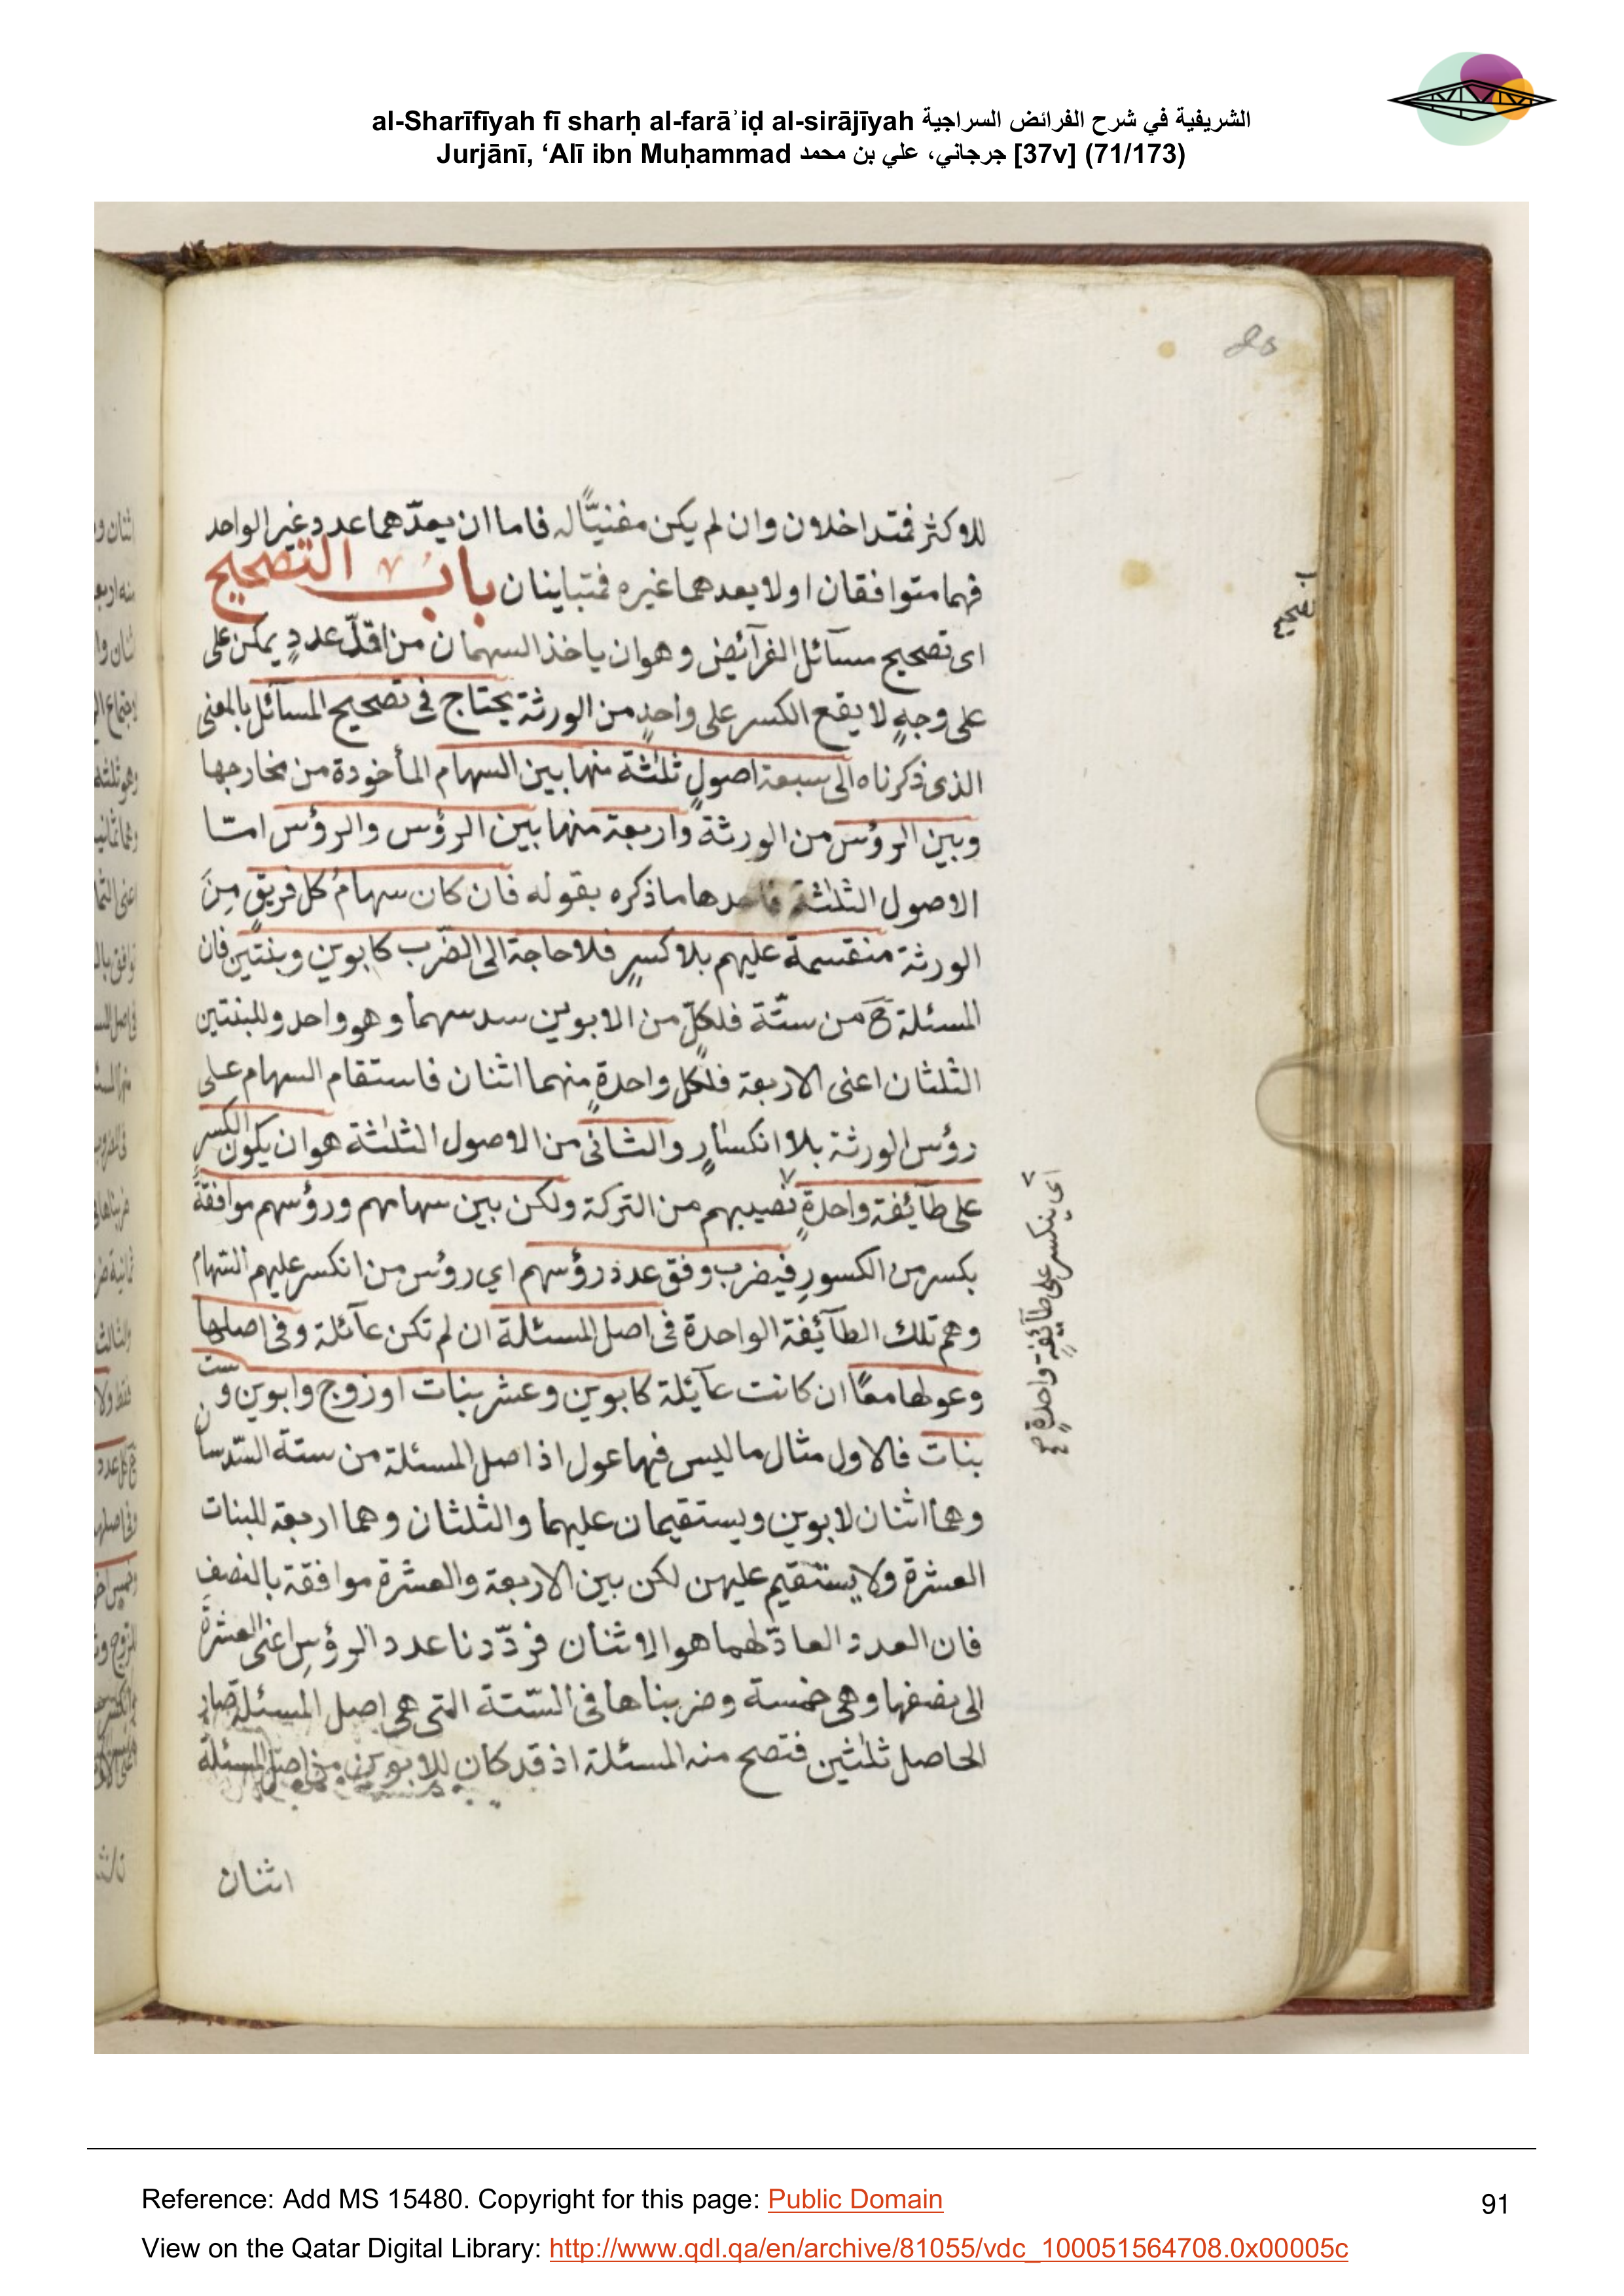 al-Sharīfīyah fī sharḥ al-farāʾiḍ al-sirājīyah الشريفية في شرح الفرائض السراجية
Jurjānī, ‘Alī ibn Muḥammad جرجاني، علي بن محمد [37v] (71/173)
للاكثر فمتداخلان وان لم يكن مفنيًّا له فاما ان يعدّهما عدد غير الواحد
فهما متوافقان او لا يعدهما غيره فمتباينان باب التصحيح
اى تصحيح مسآئل الفرآئض وهو ان ياخذ السهمان من اقلّ عددٍ يمكن على
على وجهٍ لا يقع الكسر على واحدٍ من الورثة يحتاج فى تصحيح المسآئل بالمعنى
الذى ذكرناه الى سبعة اصولٍ ثلثة منها بين السهام المأخوذة من مخارجها
وبين الرؤس من الورثة واربعة منها بين الرؤس والرؤس امّا
الاصول الثلثة فاحدها ما ذكره بقوله فان كان سهام كل فريقٍ مِنَ
الورثة منقسمة عليهم بلا كسرٍ فلا حاجة الى الضّرب كابوين وبنتين فان
المسئلة ح من ستّة فلكلّ من الابوين سدسهما وهو واحد وللبنتين
الثلثان اعنى الاربعة فلكل واحدةٍ منهما اثنان فاستقام السهام على
رؤس الورثة بلا انكسارٍ والثانى من الاصول الثلثة هو ان يكون الكسر
على طآئفة واحدةٍ نصيبهم من التركة ولكن بين سهامهم ورؤسهم موافقةً
بكسر من الكسورِ فيضرب وفق عدد رؤسهم اي رؤس من انكسر عليهم السّهام
وهم تلك الطآئفة الواحدة فى اصل المسئلة ان لم تكن عآئلة وفى اصلها
وعولها معًا ان كانت عآئلة كابوين وعشر بنات او زوج وابوين وست
بنات فالاول مثال ما ليس فيها عول اذ اصل المسئلة من ستة السّدسان
وهما اثنان لابوين ويستقيمان عليهما والثلثان وهما اربعة للبنات
العشرة ولا يستقيم عليهن لكن بين الاربعة والعشرة موافقة بالنصف
فان العدد العادّ لهما هو الاثنان فردّدنا عدد الرؤسِ اعنى العشرة
الى نصفها وهى خمسة وضربناها فى السّتة التى هى اصل المسئلة صار
الحاصل ثلثين فتصح منه المسئلة اذ قد كان للابوين من اصل المسئلة
اثنان
اى ينكسر على طآئفةٍ واحدةٍ
Reference: Add MS 15480. Copyright for this page: Public Domain
91
View on the Qatar Digital Library: http://www.qdl.qa/en/archive/81055/vdc_100051564708.0x00005c